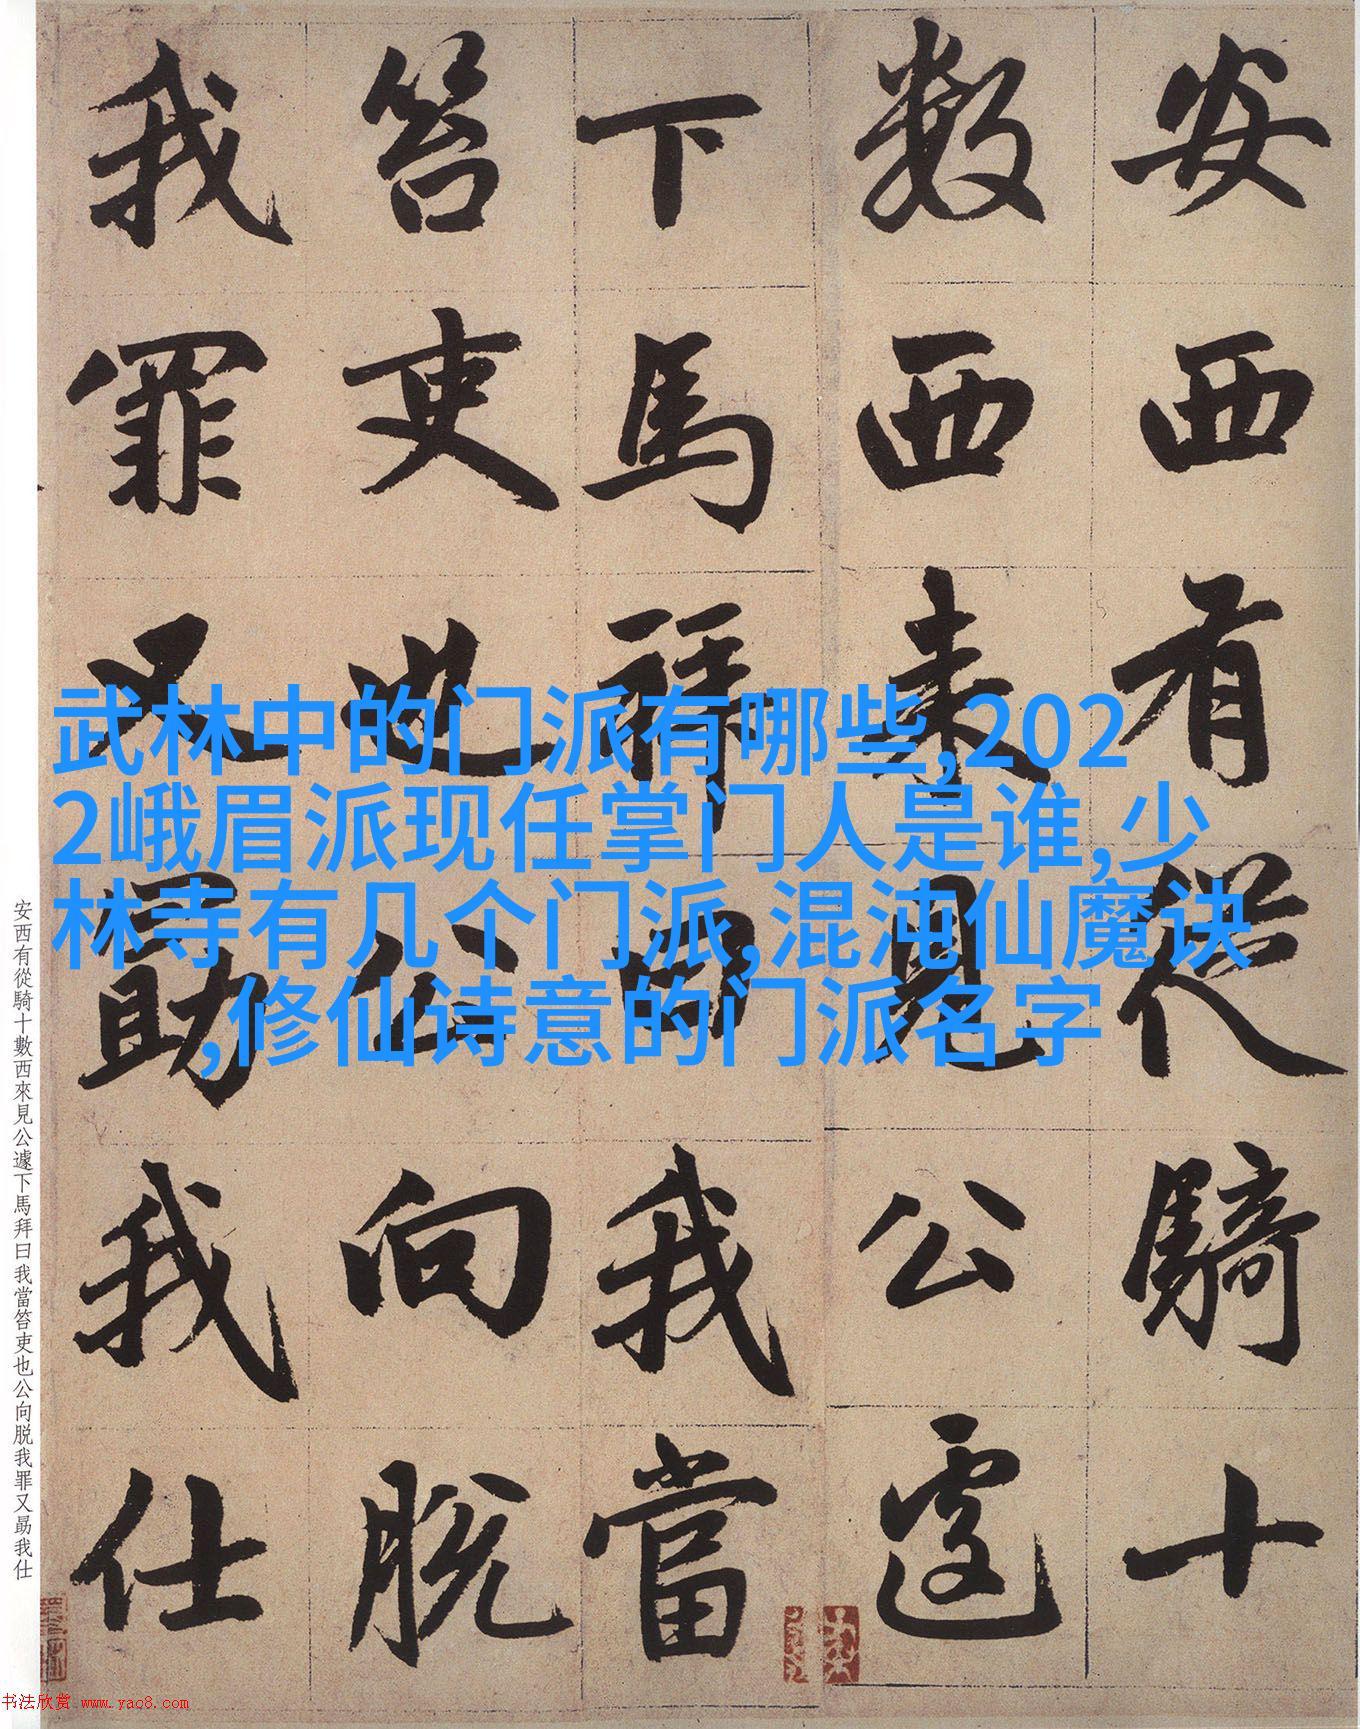 安西有從騎十
數西來見公遽
下馬拜曰我當
笞吏也公向脱
我罪又勗我仕
武林中的门派有哪些,202
2峨眉派现任掌门人是谁,少
林寺有几个门派,混沌仙魔诀
,修仙诗意的门派名字
安西有從騎十數西來見公遽下馬拜曰我當笞吏也公向脱我罪又勗我仕
书法欣赏 www.yac8.com